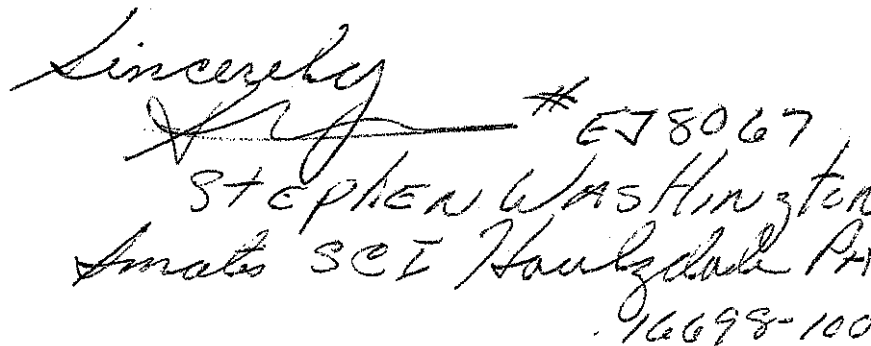 Sincerely
# EJ8067
StEphEN WASHINgton
Inmate SCI Houtzdale PA
16698-100